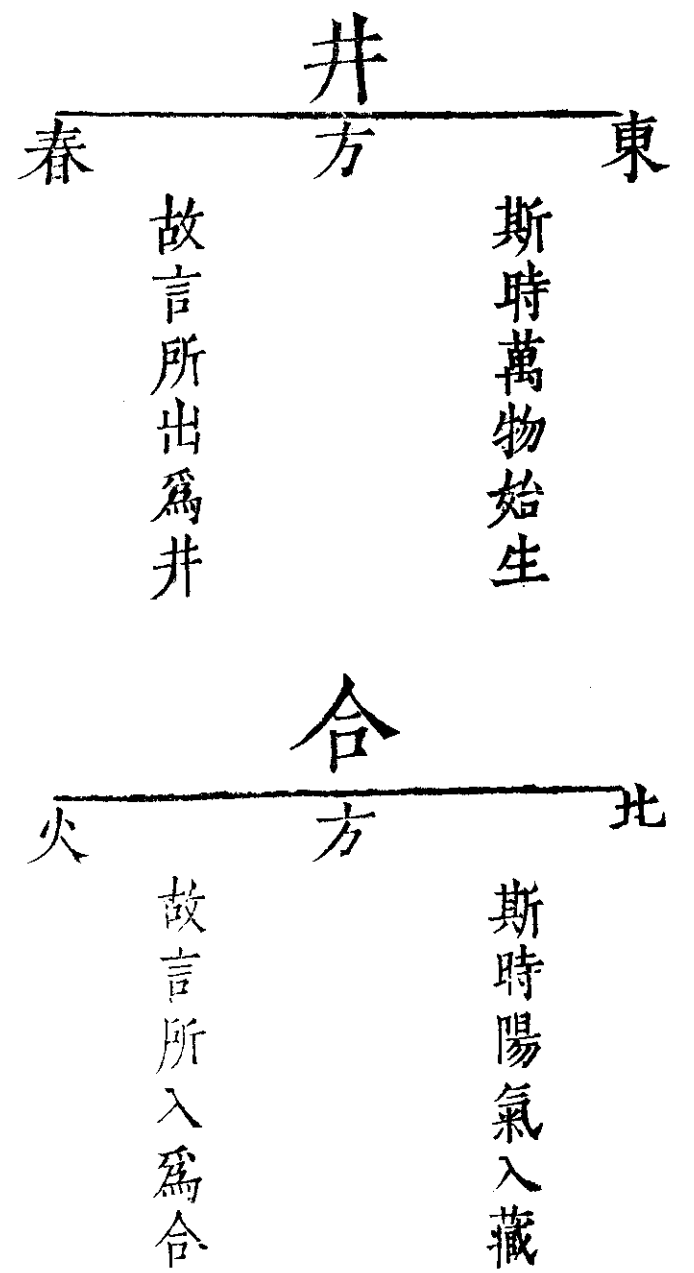 井
東方春
斯時萬物始生
故言所出爲井
合
北方火
斯時陽氣入藏
故言所入爲合